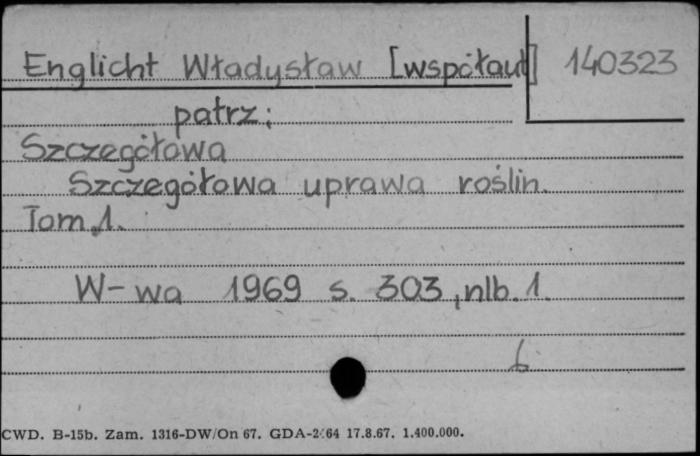 Englicht Władysław [współaut] 140323
patrz:
Szczegółowa
Szczegółowa uprawa roślin.
Tom 1.
W-wa 1969 s. 303, nlb. 1.
CWD. B-15b. Zam. 1316-DW/On 67. GDA-2 64 17.8.67. 1.400.000.